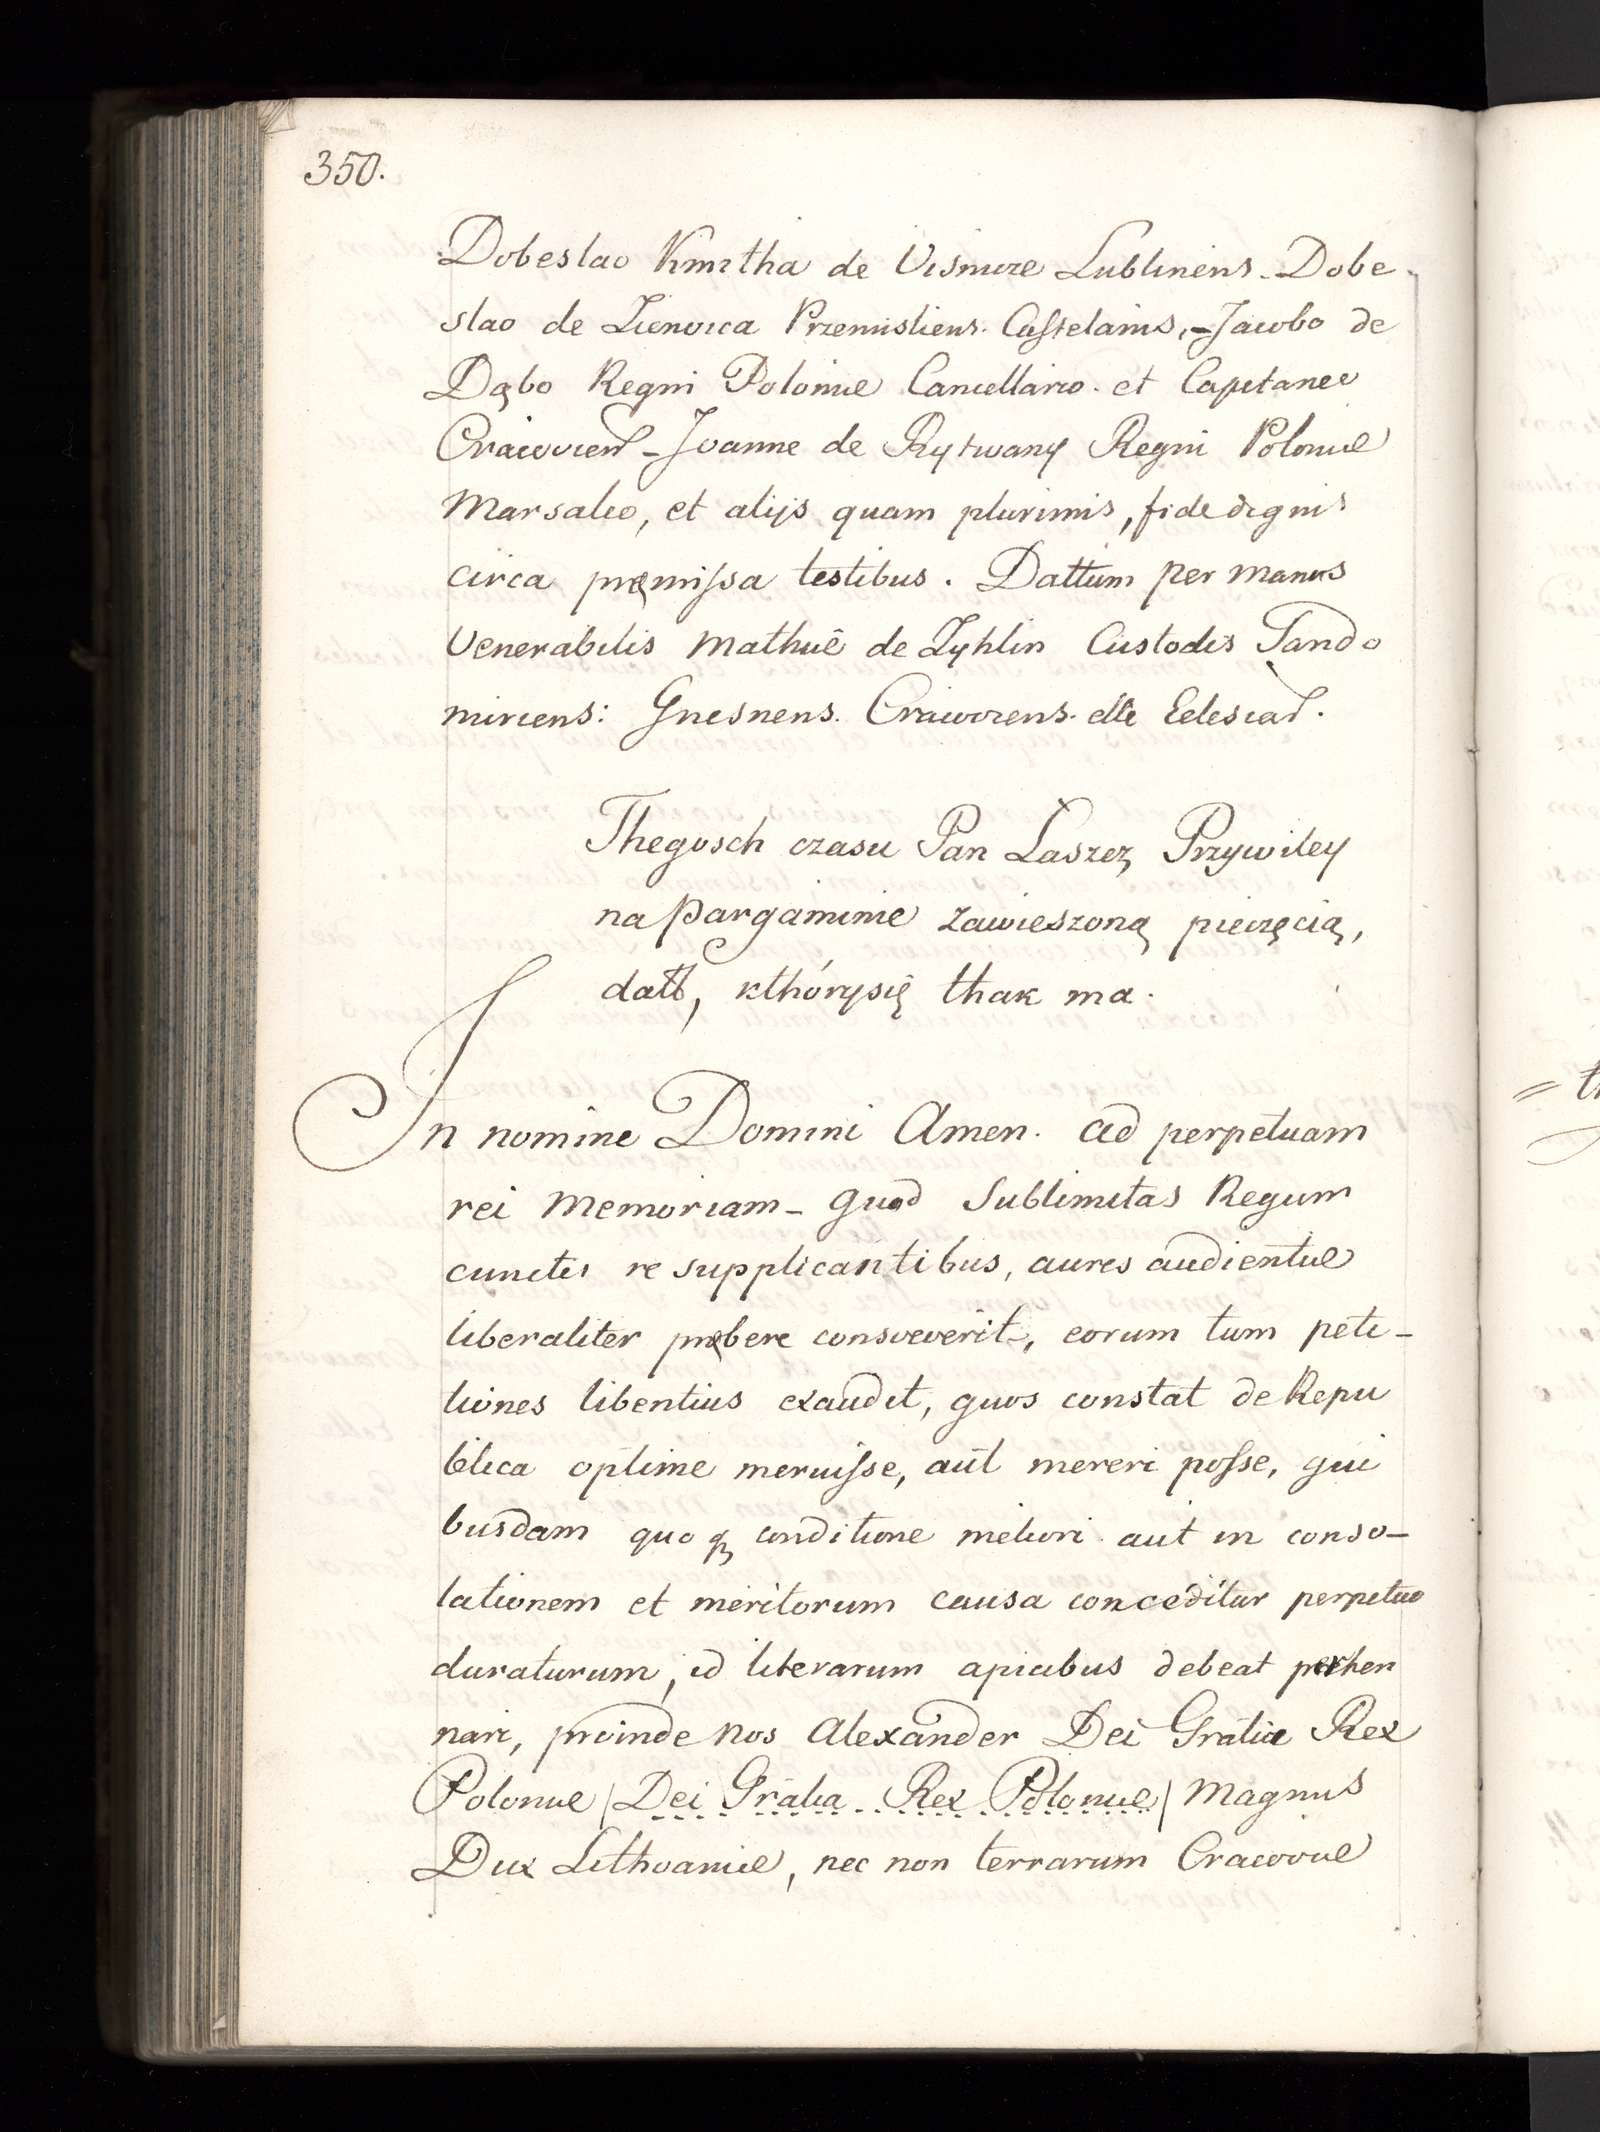 350.
Dobeslao Kmitha de Visnicze Lublinens. Dobe
slao de Zienvica Przemisliens. Castelanis, - Jacobo de
Dębo Regni Poloniæ Cancellario. et Capitaneo
Cracovien - Joanne de Rytwany Regni Poloniæ
Marsaleo, et alijs quam plurimis, fide dignis
circa pręmissa testibus. Dattum per manus
Venerabilis Mathiæ de Zyhlin Custodis Sando
miriens: Gnesnens. Cracoviens. etc Eclesiar.
Thegosch czasu Pan Laszcz Przywiley
na pargaminie zawieszoną pieczęcią,
datt, kthórysię thak ma.
In nomine Domini Amen. ad perpetuam
rei memoriam - quod Sublimitas Regum
cunctis re supplicantibus, aures audientiæ
liberaliter prębere consveverit, eorum tum peti-
tiones libentius exaudit, quos constat de Repu
blica optime meruisse, aut mereri posse, qui
busdam quoq conditione meliori aut in conso-
lationem et meritorum causa conceditur perpetuo
duraturum, id literarum apicibus debeat perhen
nari, proinde nos Alexander Dei Gratia Rex
Poloniæ / Dei Gratia Rex Poloniæ / Magnus
Dux Lithvaniæ, nec non terrarum Cracoviæ